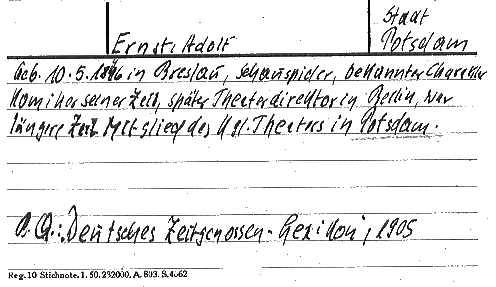 Stadt
Ernst, Adolf Potsdam
Geb. 10.5.1846 in Breslau, Schauspieler, bekannter Charakter
Komiker seiner Zeit, später Theaterdirektor in Berlin, war
längere Zeit Mitglied des Kgl. Theaters in Potsdam.
B.Q.: Deutsches Zeitgenossen-Lexikon, 1905
Reg. 10 Stichnote. 1. 50. 232000. A. 803. 8.4.62